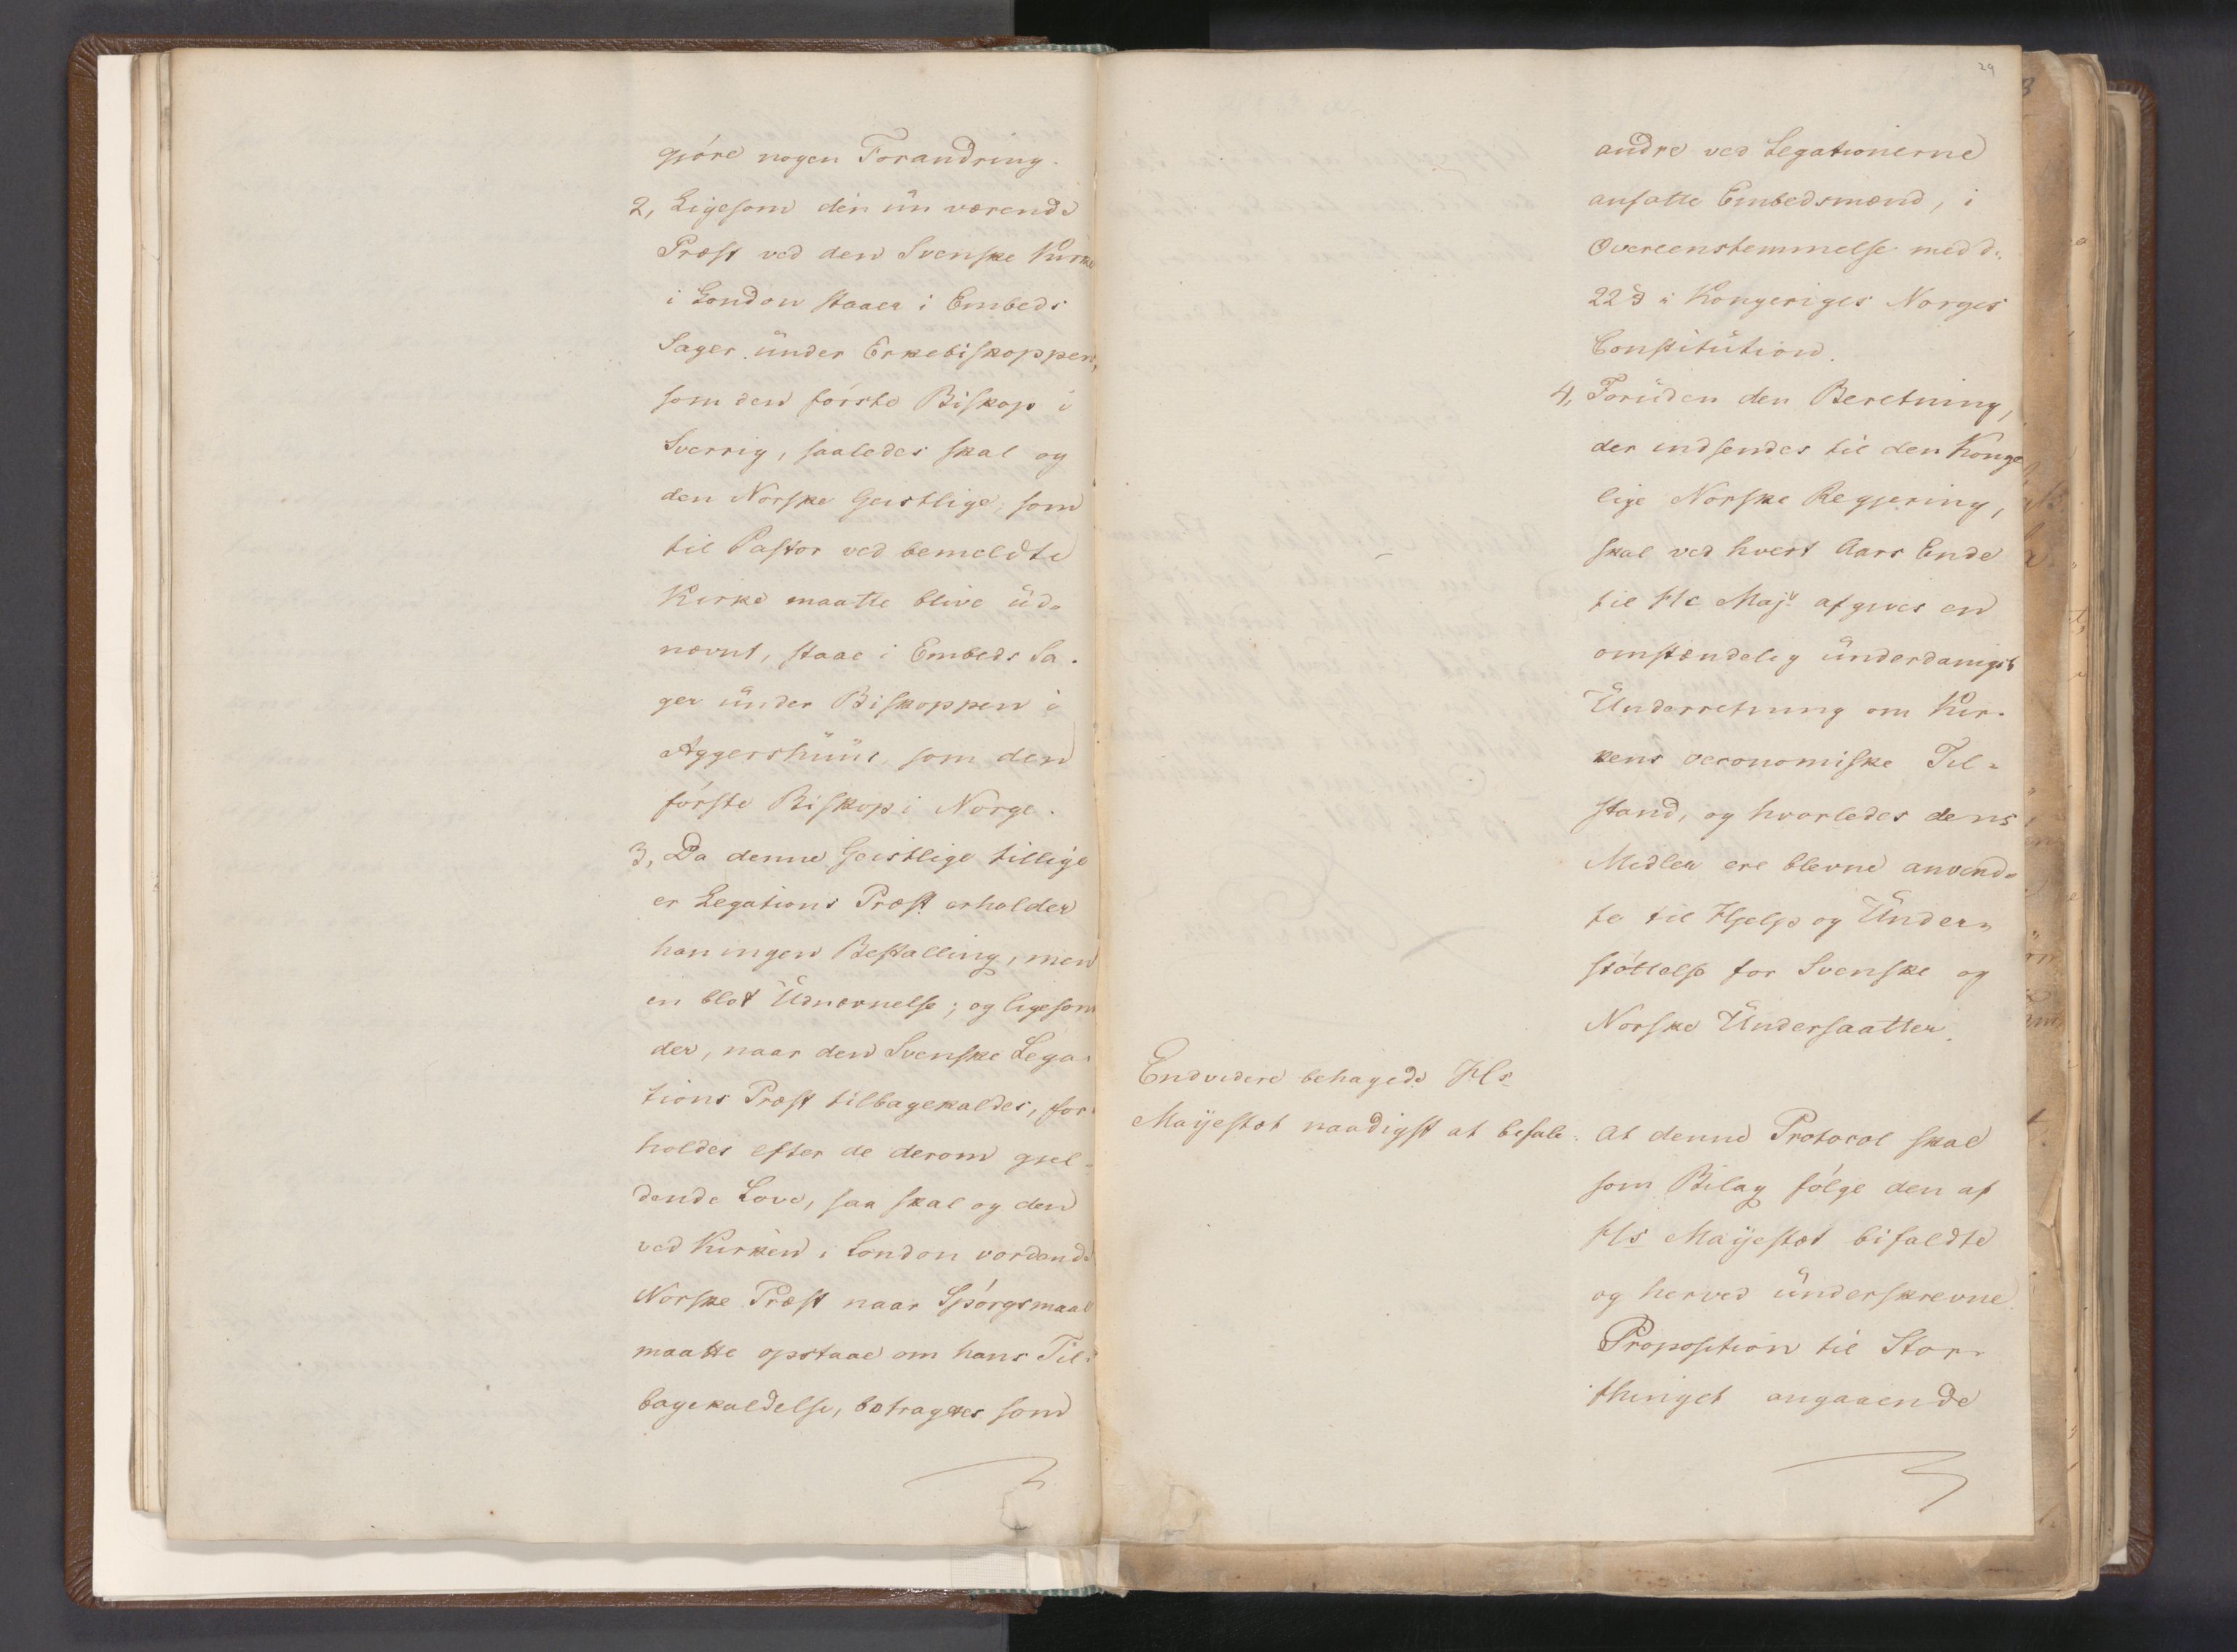 gjöre nogen Forandring.
2, Ligesom den nu værende
Præst ved den Svenske Kirke
i London staaer i Embeds
Sager under Erkebiskoppen,
som den förste Biskop i
Sverrig, saaledes skal og
den Norske Geistlige, som
til Pastor ved bemeldte
Kirke maatte blive ud-
nævnt, staae i Embeds Sa-
ger under Biskoppen i
Aggershuus, som den
förste Biskop i Norge.
3, Da denne Geistlige tillige
er Legations Præst erholder
han ingen Bestalling, men
en blot Udnævnelse; og ligesom
der, naar den Svenske Lega-
tions Præst tilbagekaldes, for-
holdes efter de derom gjel-
dende Love, saa skal og den
ved Kirken i London vordende
Norske Præst naar Spörgsmaal
maatte opstaae om hans Til-
bagekaldelse, betragtes som
29
andre ved Legationerne
ansatte Embedsmænd, i
Overeenstemmelse med d:
22 § i Kongeriges Norges
Constitution.
4, Foruden den Beretning,
der indsendes til den Konge
lige Norske Regjering,
skal ved hvert Aars Ende
til Hs Majt afgives en
omstændelig underdanigst
Underretning om Kir-
kens oeconomiske Til-
stand, og hvorledes dens
Midler ere blevne anvend-
te til Hjelp og Under-
stöttelse for Svenske og
Norske Undersaatter.
Endvidere behagede Hs
Majestæt naadigst at befale: At denne Protocol skal
som Bilag fölge den af
Hs Majestæt bifaldte
og herved underskrevne
Proposition til Stor-
thinget angaaende